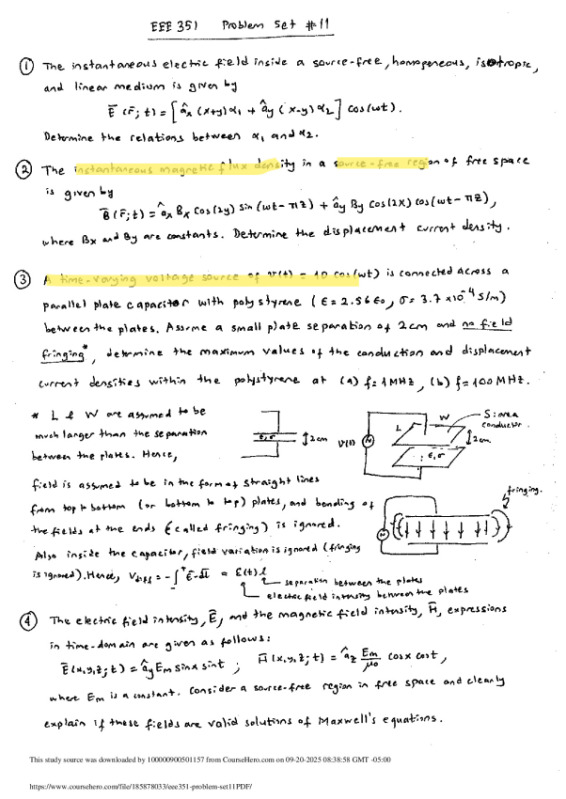 EEE 351 Problem Set #11
① The instantaneous electric field inside a source-free, homogeneous, isotropic,
and linear medium is given by
Ē(r̄;t) = [âx(x+y)α1 + ây(x-y)α2] cos(ωt).
Determine the relations between α1 and α2.
② The instantaneous magnetic flux density in a source-free region of free space
is given by
B̄(r̄;t) = âx Bx cos(2y) sin(ωt-πz) + ây By cos(2x) cos(ωt-πz),
where Bx and By are constants. Determine the displacement current density.
③ A time-varying voltage source of v(t) = 10 cos(ωt) is connected across a
parallel plate capacitor with polystyrene (ε = 2.56ε0, σ = 3.7×10⁻⁴ S/m)
between the plates. Assume a small plate separation of 2cm and no field
fringing*, determine the maximum values of the conduction and displacement
current densities within the polystyrene at (a) f=1MHz, (b) f=100MHz.
* L & W are assumed to be
much larger than the separation
between the plates. Hence,
ε,σ
2cm
V(t)
L
W
S: area
conductor.
2cm
ε,σ
field is assumed to be in the form of straight lines
from top to bottom (or bottom to top) plates, and bending of
the fields at the ends (called fringing) is ignored.
fringing.
Also inside the capacitor, field variation is ignored (fringing
is ignored). Hence, Vdiff = -∫Ē·dl̄ = E(t)l
separation between the plates
electric field intensity between the plates
④ The electric field intensity, Ē, and the magnetic field intensity, H̄, expressions
in time-domain are given as follows:
Ē(x,y,z;t) = ây Em sinx sint ; H̄(x,y,z;t) = âz Em/μ0 cosx cost,
where Em is a constant. Consider a source-free region in free space and clearly
explain if these fields are valid solutions of Maxwell's equations.
This study source was downloaded by 100000900501157 from CourseHero.com on 09-20-2025 08:38:58 GMT -05:00
https://www.coursehero.com/file/185878033/eee351-problem-set11PDF/